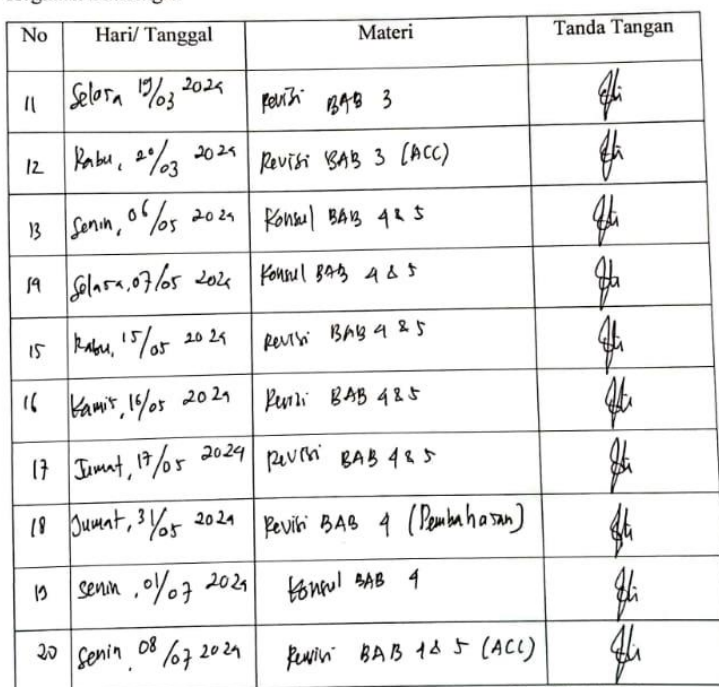 No Hari/ Tanggal Materi Tanda Tangan
11 Selasa 19/03 2024 Revisi BAB 3
12 Rabu, 20/03 2024 Revisi BAB 3 (ACC)
13 Senin, 06/05 2024 Konsul BAB 4 & 5
14 Selasa, 07/05 2024 Konsul BAB 4 & 5
15 Rabu, 15/05 2024 Revisi BAB 4 & 5
16 Kamis, 16/05 2024 Revisi BAB 4 & 5
17 Jumat, 17/05 2024 Revisi BAB 4 & 5
18 Jumat, 31/05 2024 Revisi BAB 4 (Pembahasan)
19 Senin, 01/07 2024 Konsul BAB 4
20 Senin, 08/07 2024 Revisi BAB 4 & 5 (ACC)